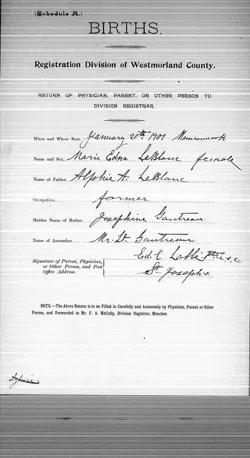 (Schedule A.)
BIRTHS.
Registration Division of Westmorland County.
RETURN OF PHYSICIAN, PARENT, OR OTHER PERSON TO
DIVISION REGISTRAR.
When and Where Born, January 20th 1901 Memramcook
Name and Sex, Marie Edna LeBlanc female
Name of Father, Alphie A. LeBlanc
Occupation, farmer
Maiden Name of Mother, Josephine Gautreau
Name of Accoucher, Gautreau
Signature of Parent, Physician,
or Other Person, and Post
Office Address. Ed. C.
St. Josephs
NOTE.—The Above Return is to be Filled in Carefully and Accurately by Physician, Parent or Other
Person, and Forwarded to Mr. F. A. McCully, Division Registrar, Moncton.